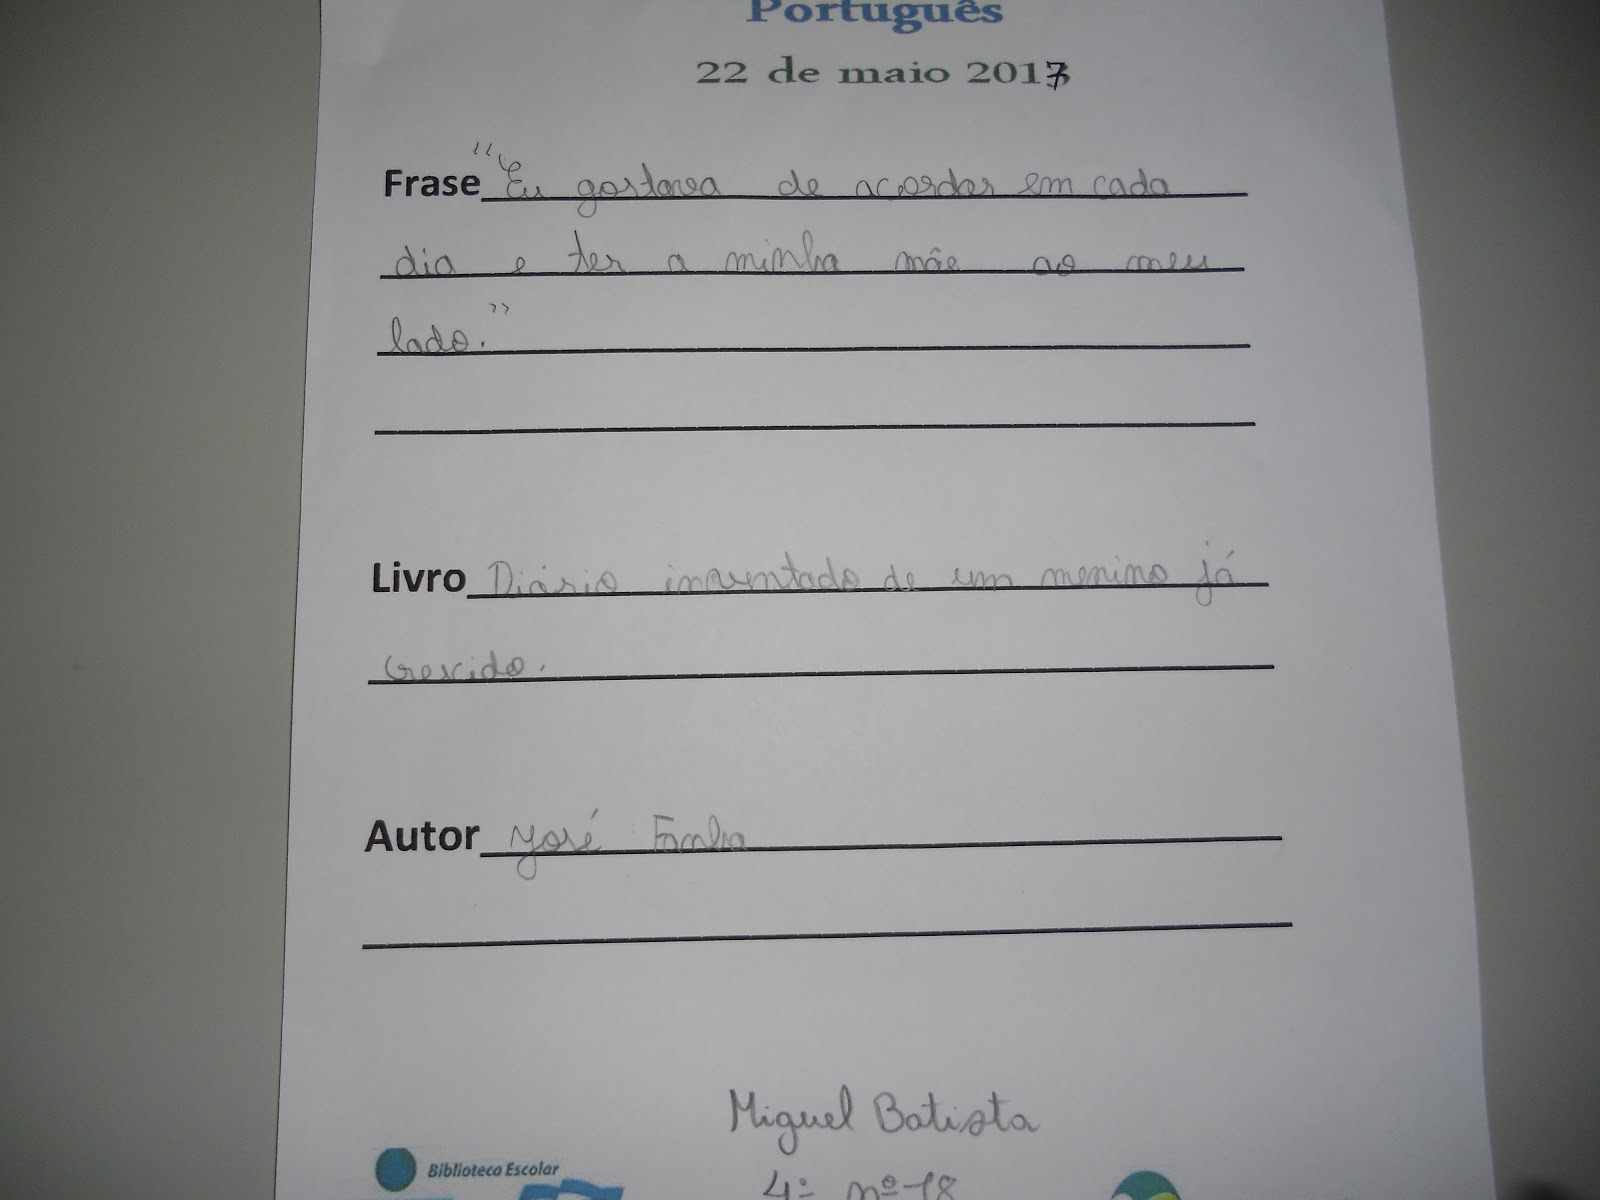 Português
22 de maio 2017
Frase "Eu gostava de acordar em cada
dia e ter a minha mãe ao meu
lado."
Livro Diário inventado de um menino já
crescido.
Autor José Fanha
Miguel Batista
4º nº 18
Biblioteca Escolar